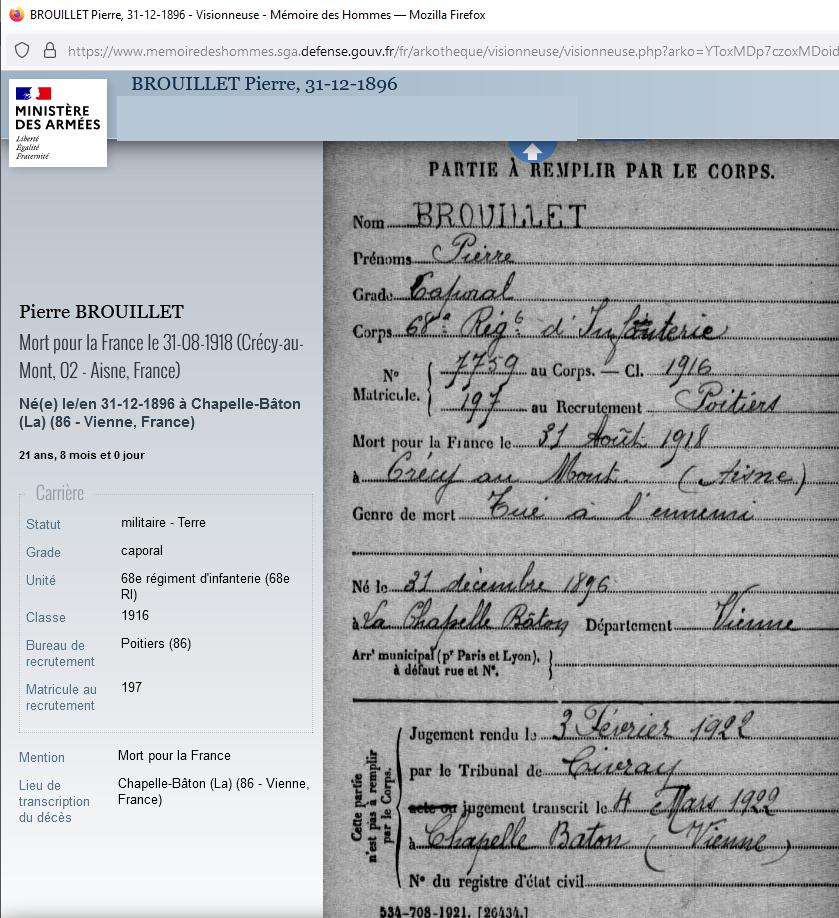 BROUILLET Pierre, 31-12-1896 - Visionneuse - Mémoire des Hommes — Mozilla Firefox
https://www.memoiredeshommes.sga.defense.gouv.fr/fr/arkotheque/visionneuse/visionneuse.php?arko=YToxMDp7czoxMDoid
BROUILLET Pierre, 31-12-1896
MINISTÈRE
DES ARMÉES
Liberté
Égalité
Fraternité
Pierre BROUILLET
Mort pour la France le 31-08-1918 (Crécy-au-
Mont, 02 - Aisne, France)
Né(e) le/en 31-12-1896 à Chapelle-Bâton
(La) (86 - Vienne, France)
21 ans, 8 mois et 0 jour
Carrière
Statut militaire - Terre
Grade caporal
Unité 68e régiment d'infanterie (68e
RI)
Classe 1916
Bureau de Poitiers (86)
recrutement
Matricule au 197
recrutement
Mention Mort pour la France
Lieu de Chapelle-Bâton (La) (86 - Vienne,
transcription France)
du décès
PARTIE À REMPLIR PAR LE CORPS.
Nom BROUILLET
Prénoms Pierre
Grade Caporal
Corps 68e Régt d'Infanterie
No 7759 au Corps. — Cl. 1916
Matricule. 197 au Recrutement Poitiers
Mort pour la France le 31 Août 1918
à Crécy au Mont (Aisne)
Genre de mort Tué à l'ennemi
Né le 31 décembre 1896
à La Chapelle Bâton Département Vienne
Arrt municipal (pr Paris et Lyon),
à défaut rue et No.
Cette partie
n'est pas à remplir
par le Corps.
Jugement rendu le 3 Février 1922
par le Tribunal de Civray
acte ou jugement transcrit le 4 Mars 1922
à Chapelle Baton (Vienne)
No du registre d'état civil
534-708-1921. [26434.]